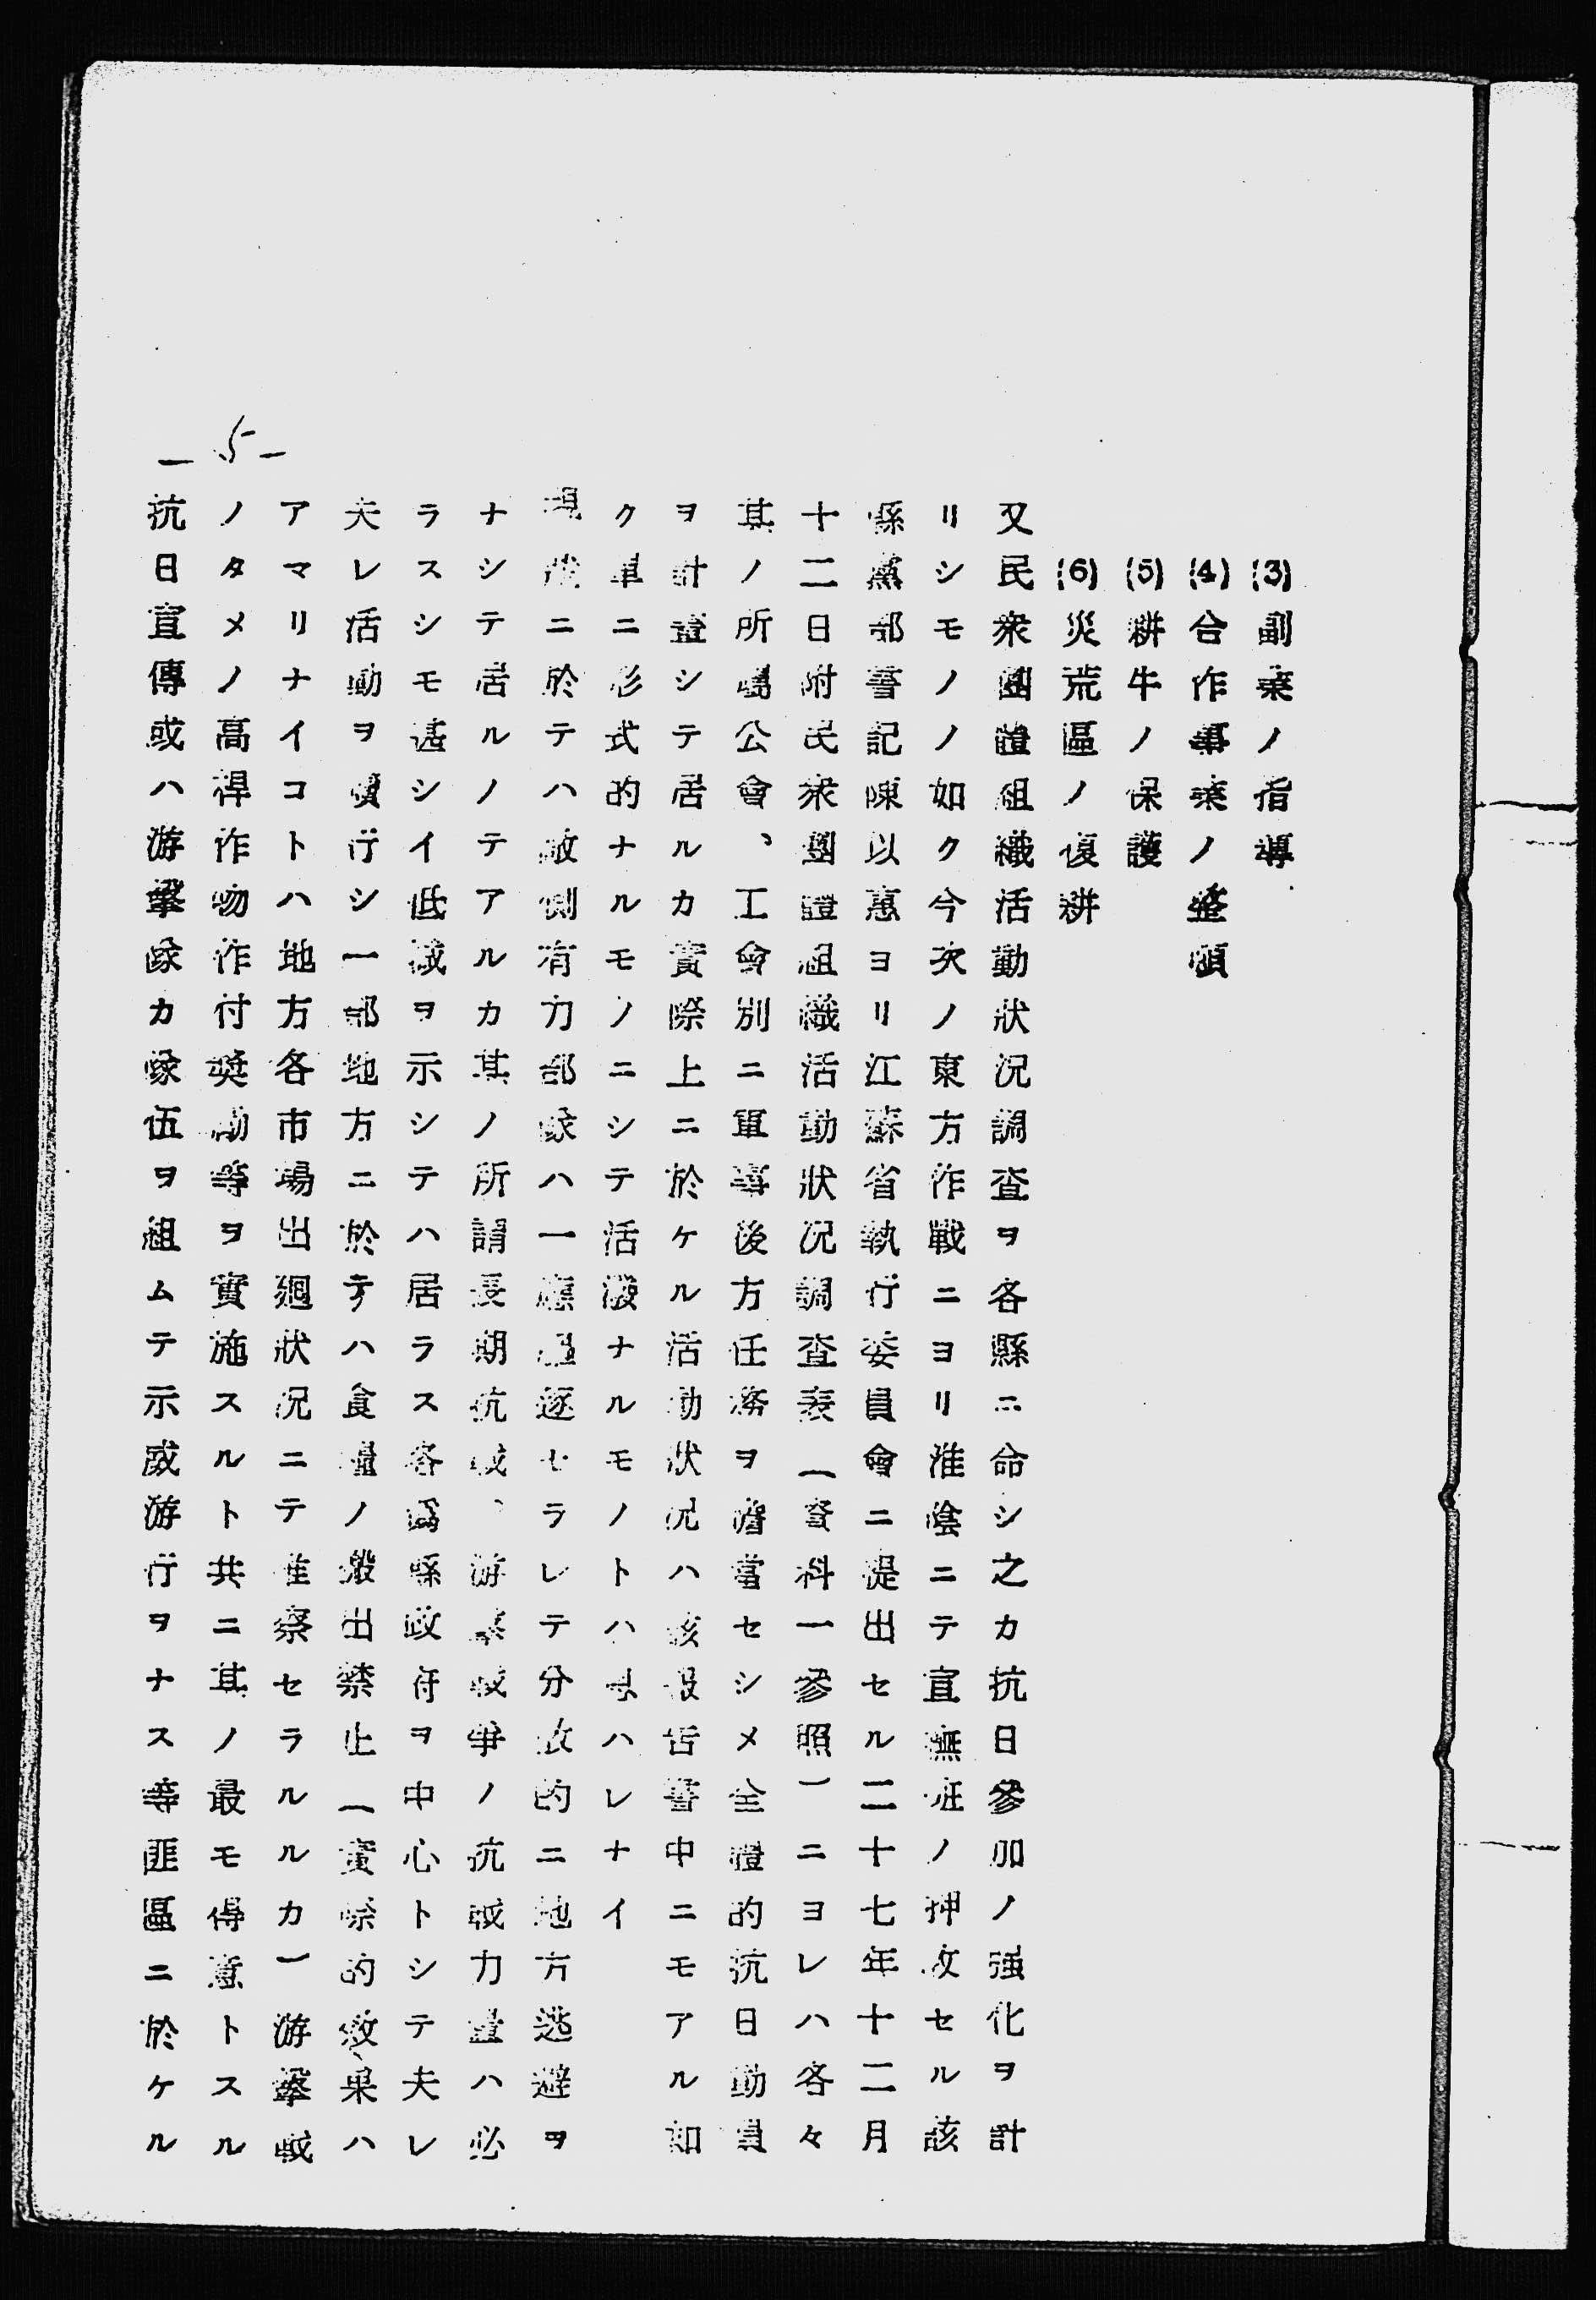 (3)副業ノ指導
(4)合作事業ノ整頓
(5)耕牛ノ保護
(6)災荒區ノ復耕
又民衆團體組織活動狀況調査ヲ各縣ニ命シ之カ抗日參加ノ强化ヲ計
リシモノノ如ク今次ノ東方作戰ニヨリ淮陰ニテ宣撫班ノ押收セル該
縣黨部書記陳以惠ヨリ江蘇省執行委員會ニ提出セル二十七年十二月
十二日附民衆團體組織活動狀況調査表(資料一參照)ニヨレハ各々
其ノ所屬公會、工會別ニ軍事後方任務ヲ擔當セシメ全體的抗日動員
ヲ計畫シテ居ルカ實際上ニ於ケル活動狀況ハ該報告書中ニモアル如
ク單ニ形式的ナルモノニシテ活潑ナルモノトハ思ハレナイ
現段ニ於テハ敵側有力部隊ハ一應逐セラレテ分散的ニ地方逃避ヲ
ナシテ居ルノテアルカ其ノ所謂長期抗戰、游擊戰爭ノ抗戰力量ハ必
ラスシモ甚シイ低減ヲ示シテハ居ラス各僞縣政府ヲ中心トシテ夫レ
夫レ活動ヲ續行シ一部地方ニ於テハ食糧ノ搬出禁止(實際的效果ハ
アマリナイコトハ地方各市場出廻狀況ニテ推察セラルルカ)游擊戰
ノタメノ高稈作物作付奬勵等ヲ實施スルト共ニ其ノ最モ得意トスル
抗日宣傳或ハ游擊隊カ隊伍ヲ組ムテ示威游行ヲナス等匪區ニ於ケル
-5-